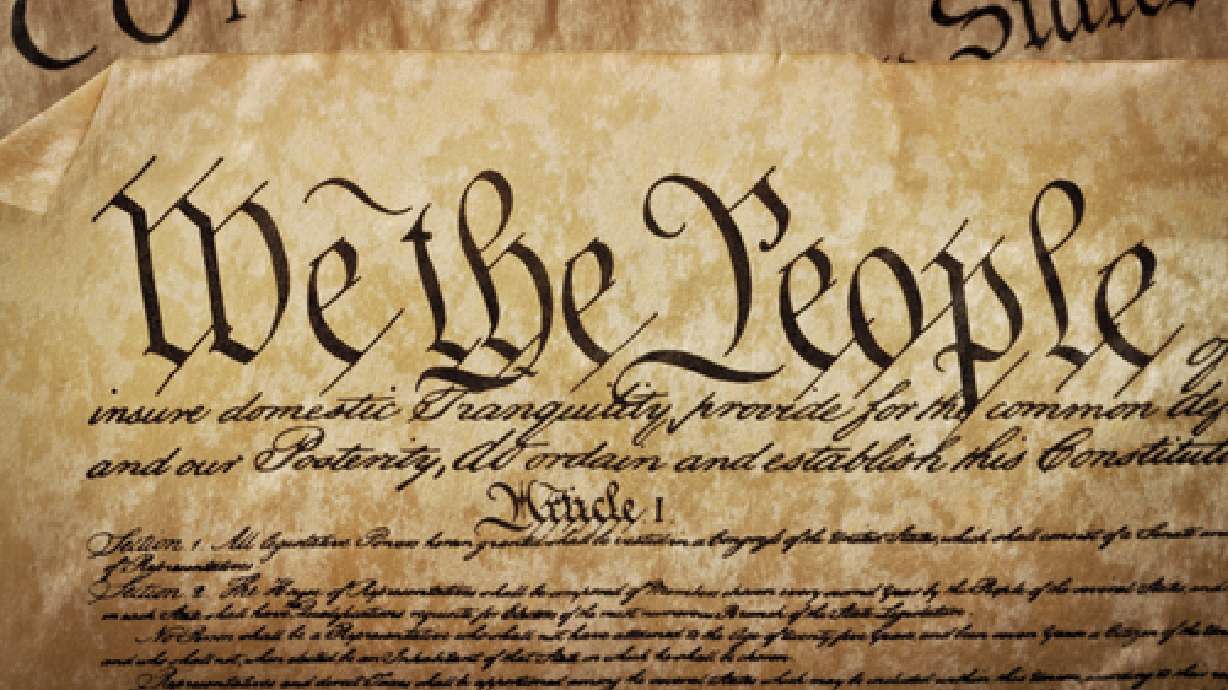 States
We the People
insure domestic Tranquility, provide for the common def
and our Posterity, do ordain and establish this Constitut
Article I.
Section 1. All legislative Powers herein granted shall be vested in a Congress of the United States, which shall consist of a Senate an
of Representatives.
Section 2. The House of Representatives shall be composed of Members chosen every second Year by the People of the several States, and
in each State shall have Qualifications requisite for Electors of the most numerous Branch of the State Legislature.
No Person shall be a Representative who shall not have attained to the Age of twenty five Years, and been seven Years a Citizen of the
and who shall not, when elected, be an Inhabitant of that State in which he shall be chosen.
Representatives and direct Taxes shall be apportioned among the several States which may be included within this